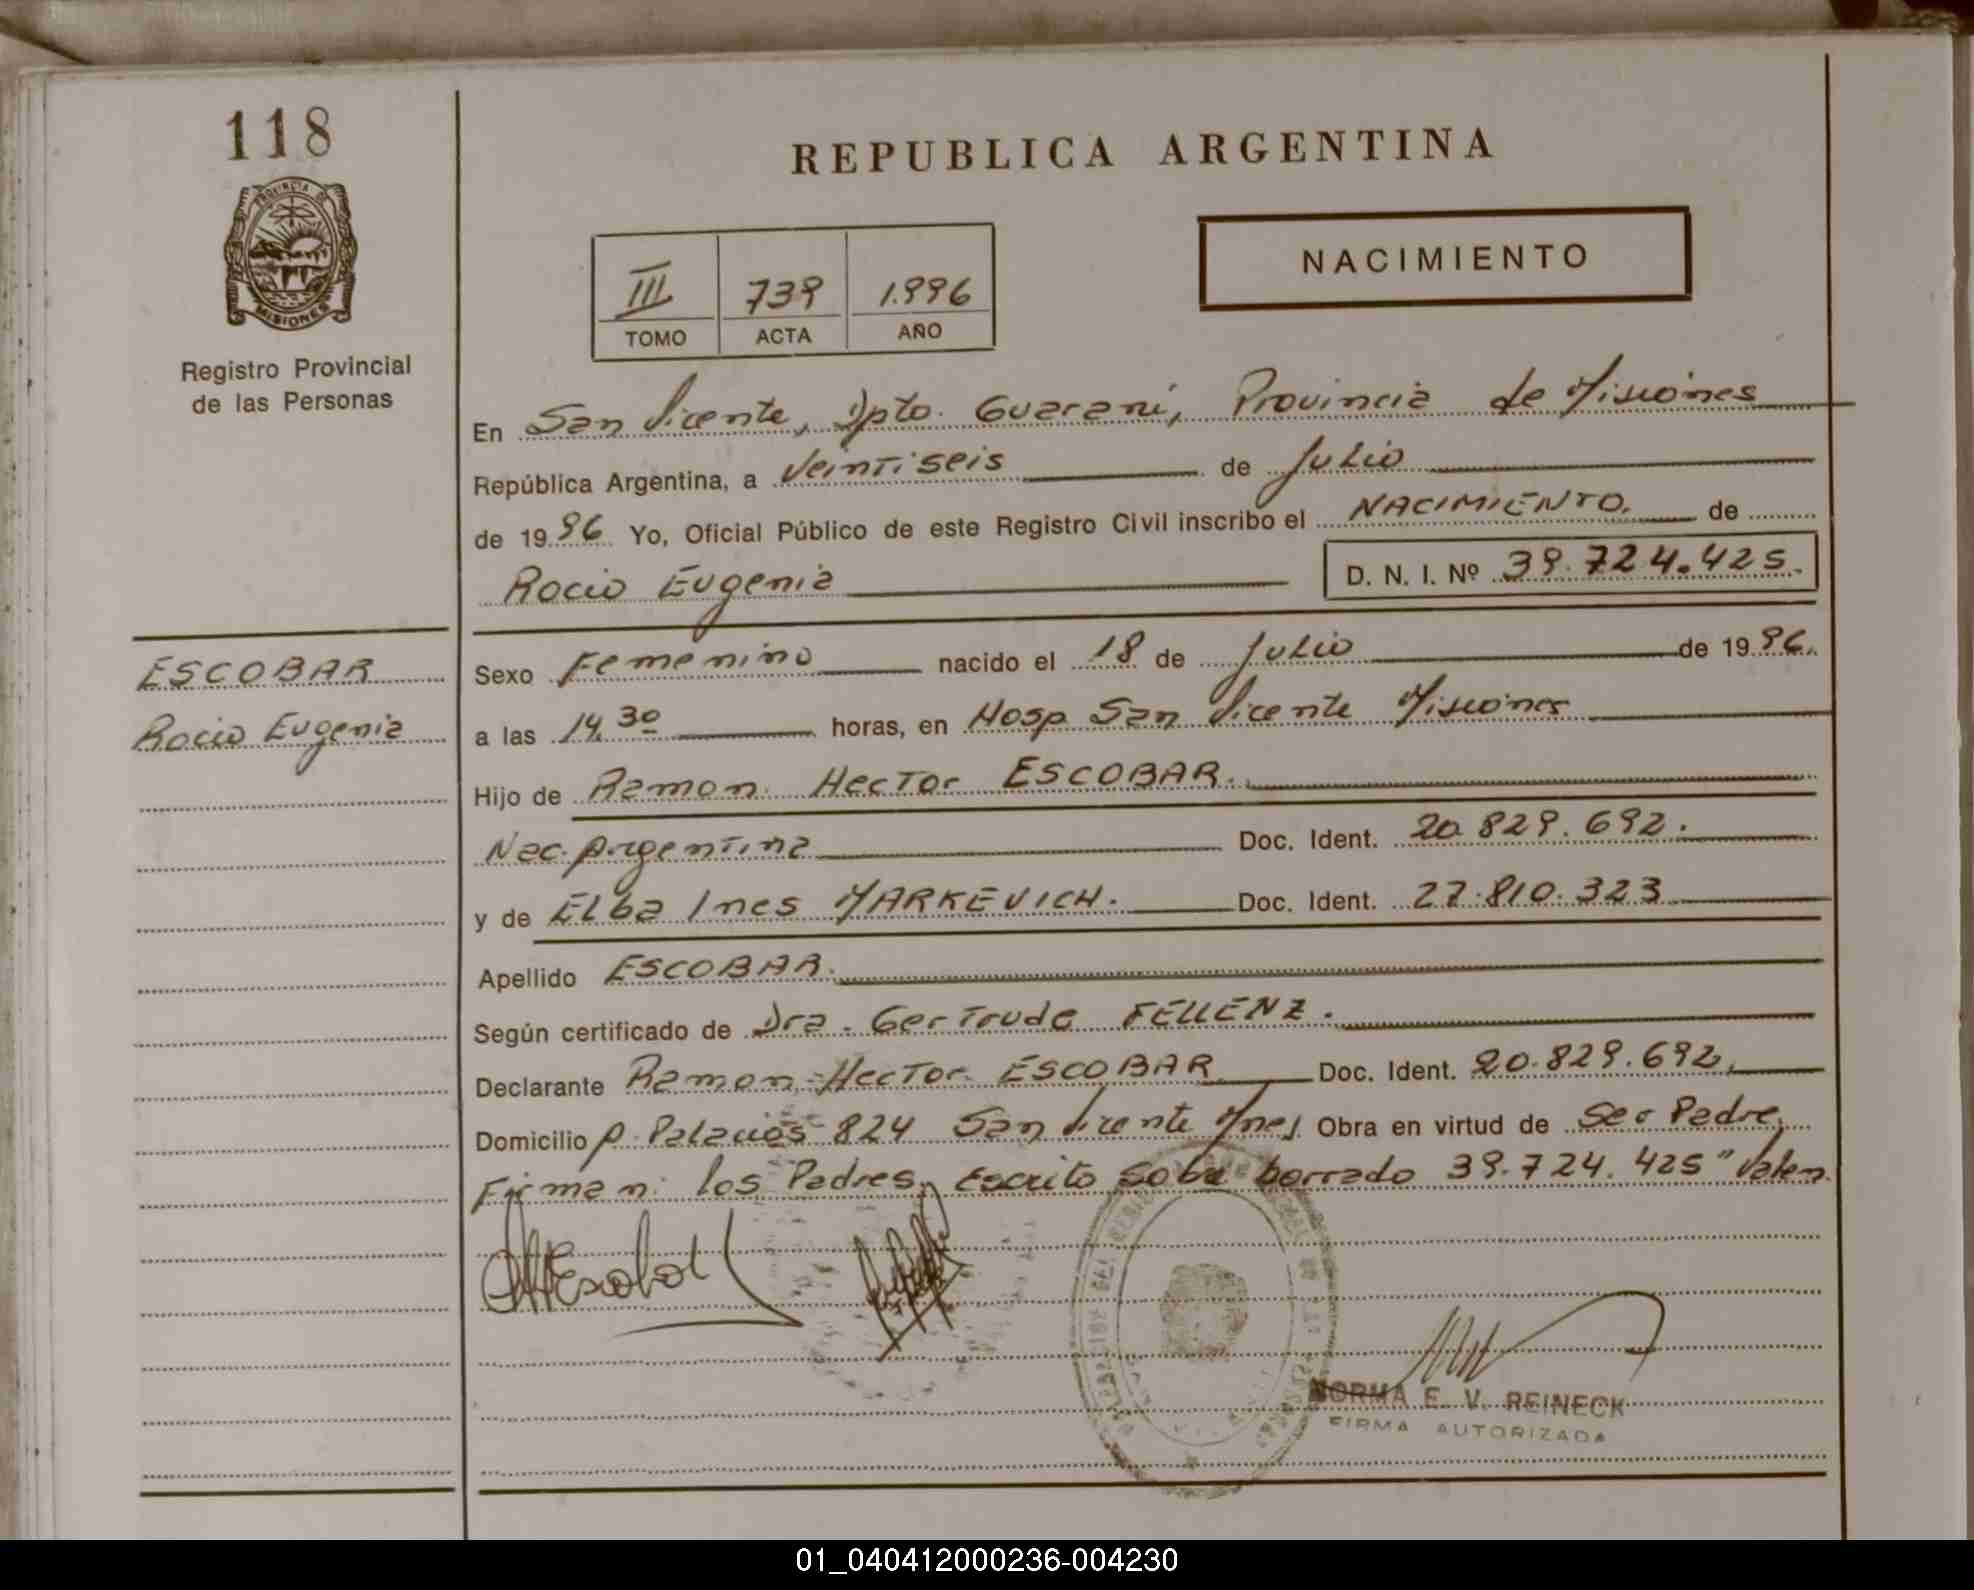 118
PROVINCIA DE
MISIONES
Registro Provincial
de las Personas
REPUBLICA ARGENTINA
NACIMIENTO
III 739 1.996
TOMO ACTA AÑO
En San Vicente, Dpto. Guaraní, Provincia de Misiones
República Argentina, a Veintiseis de Julio
de 1996 Yo, Oficial Público de este Registro Civil inscribo el NACIMIENTO. de
Rocio Eugenia D. N. I. Nº 39.724.425.
ESCOBAR
Rocio Eugenia
Sexo Femenino nacido el 18 de Julio de 1996.
a las 14,30 horas, en Hosp San Vicente Misiones
Hijo de Ramon Hector ESCOBAR.
Nac. Argentina Doc. Ident. 20.829.692.
y de Elba Ines MARKEVICH. Doc. Ident. 27.810.323
Apellido ESCOBAR.
Según certificado de Dra. Gertrude FELLENZ.
Declarante Ramon Hector ESCOBAR Doc. Ident. 20.829.692.
Domicilio A. Palacios 824 San Vicente Mnes Obra en virtud de Ser Padre,
Firman los Padres, Escrito sobre borrado 39.724.425" Valen.
NORMA E. V. REINECK
FIRMA AUTORIZADA
01_040412000236-004230